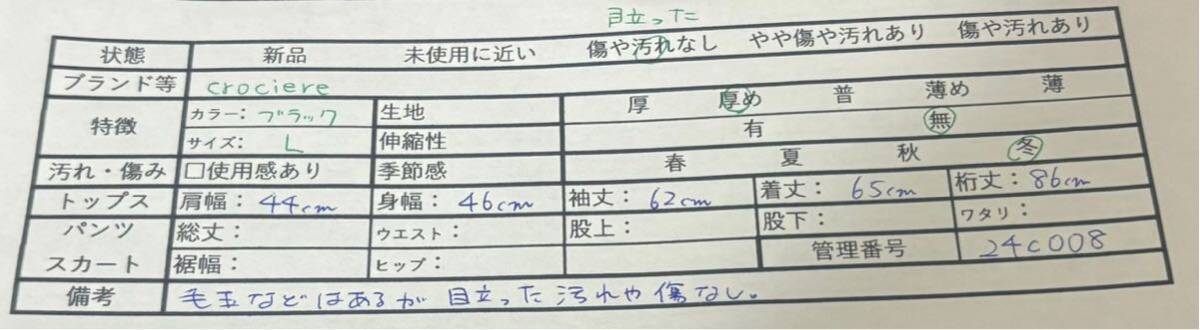 目立った
状態 新品 未使用に近い 傷や汚れなし やや傷や汚れあり 傷や汚れあり
ブランド等 crociere
特徴 カラー: ブラック 生地 厚 厚め 普 薄め 薄
サイズ: L 伸縮性 有 無
汚れ・傷み □使用感あり 季節感 春 夏 秋 冬
トップス 肩幅: 44cm 身幅: 46cm 袖丈: 62cm 着丈: 65cm 裄丈: 86cm
パンツ 総丈: ウエスト: 股上: 股下: ワタリ:
スカート 裾幅: ヒップ: 管理番号 24C008
備考 毛玉などはあるが 目立った汚れや傷なし。